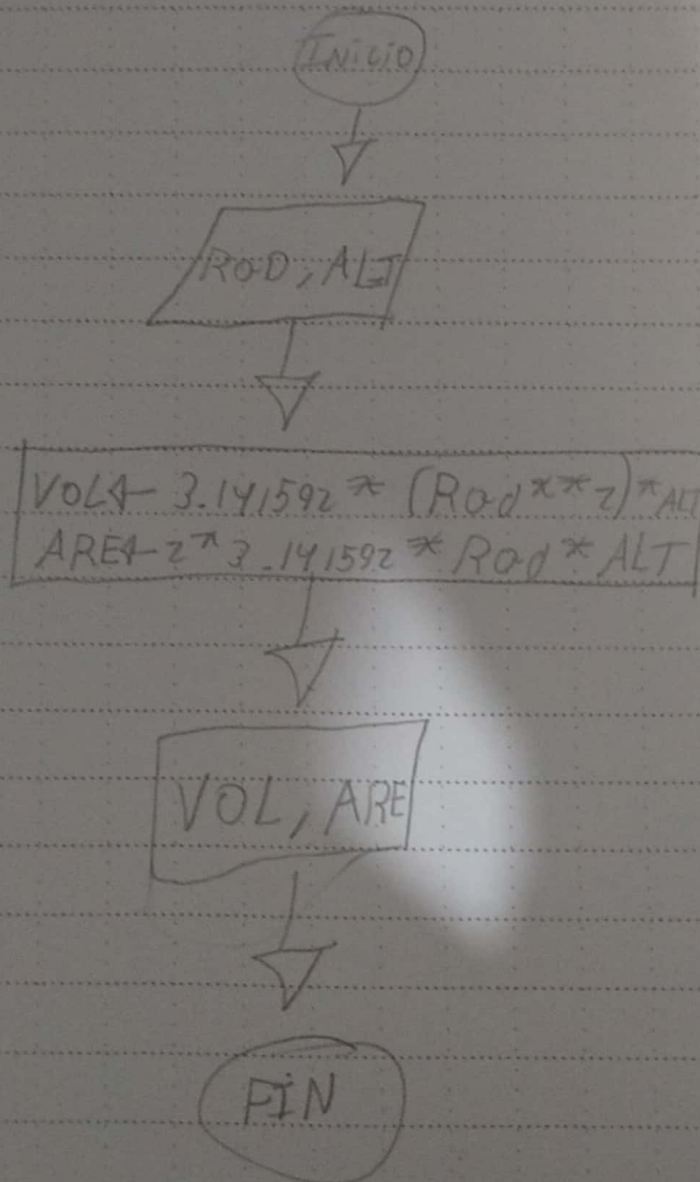 INICIO
ROD, ALT
VOL← 3.141592 * (Rod**2)*ALT
ARE←2*3.141592 * Rod * ALT
VOL, ARE
FIN